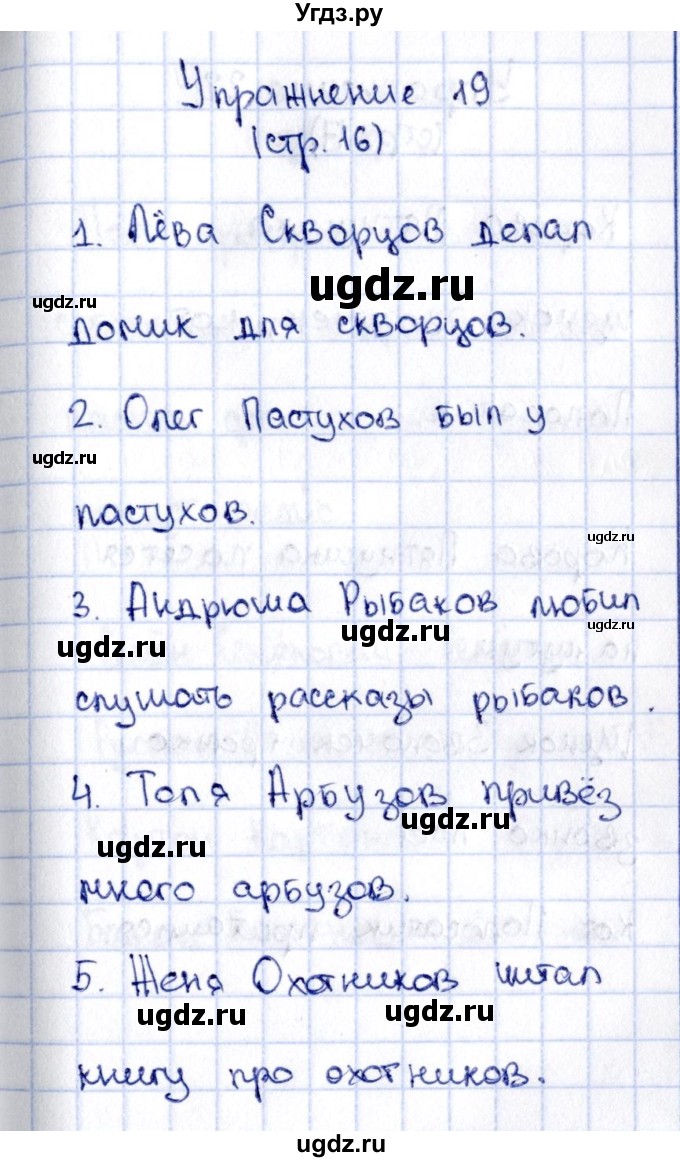 Угдз.ру
Упражнение 19
(стр. 16)
1. Лёва Скворцов делал
ugdz.ru
ugdz.ru
домик для скворцов.
2. Олег Пастухов был у
ugdz.ru
пастухов.
ugdz.ru
3. Андрюша Рыбаков любил
ugdz.ru
ugdz.ru
ugdz.ru
слушать рассказы рыбаков.
4. Толя Арбузов привёз
ugdz.ru
ugdz.ru
много арбузов.
5. Женя Охотников читал
ugdz.ru
ugdz.ru
книгу про охотников.
ugdz.ru